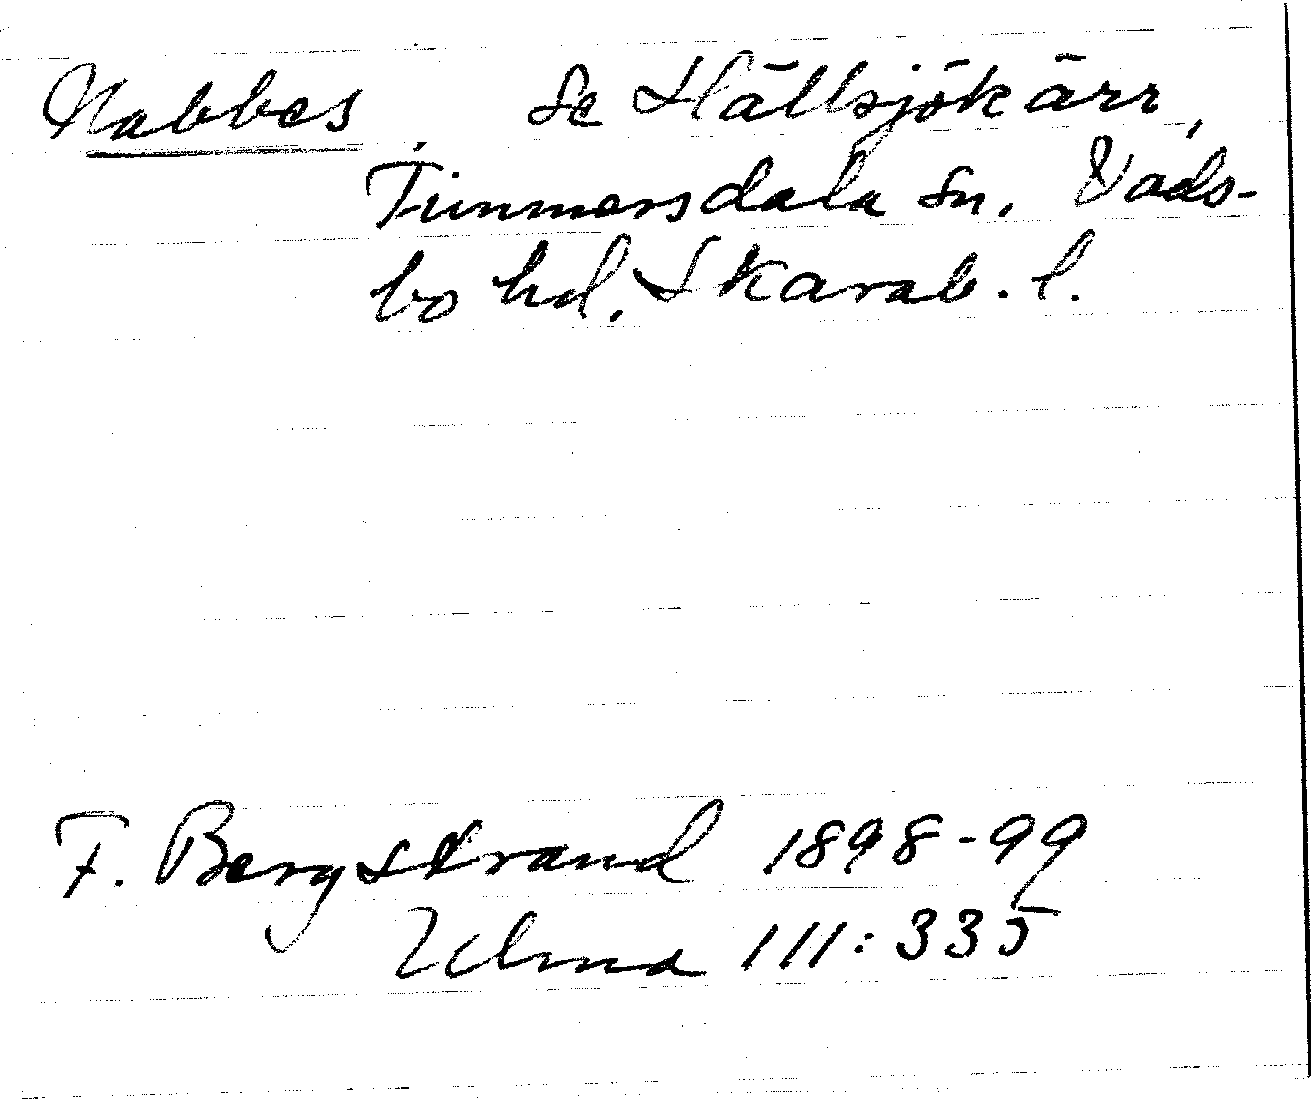 Nabbes. Se Hällsjökärr,
Timmersdala sn. Vads-
bo hd. Skarab. l.
F. Bergstrand 1898-99
Ulma 111:335